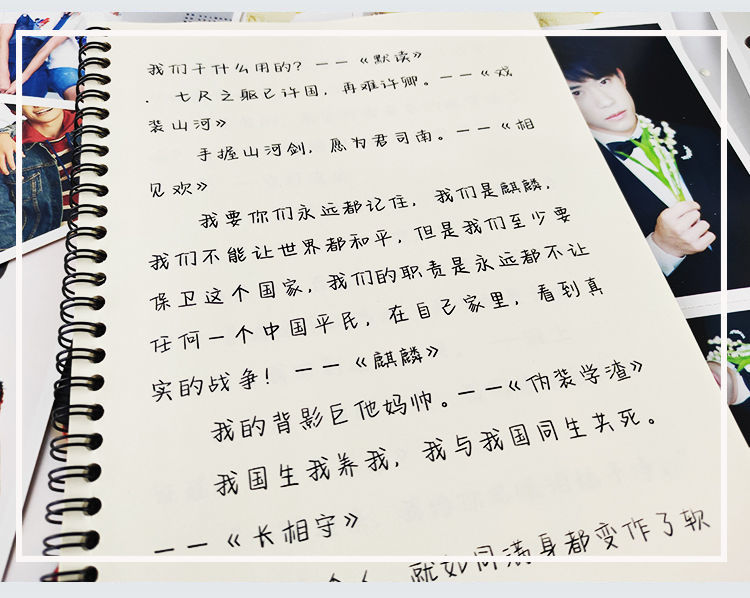 我们干什么用的？——《默读》
. 七尺之躯已许国，再难许卿。——《戏
装山河》
手握山河剑，愿为君司南。——《相
见欢》
我要你们永远都记住，我们是麒麟，
我们不能让世界都和平，但是我们至少要
保卫这个国家，我们的职责是永远都不让
任何一个中国平民，在自己家里，看到真
实的战争！——《麒麟》
我的背影巨他妈帅。——《伪装学渣》
我国生我养我，我与我国同生共死。
——《长相守》
就如同满身都变作了软